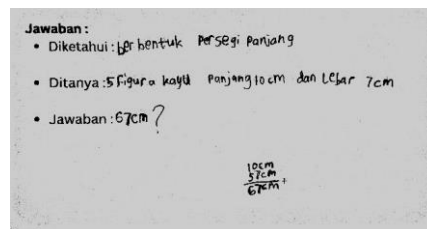 Jawaban :
• Diketahui : berbentuk Persegi Panjang
• Ditanya : 5 Figura kayu Panjang 10 cm dan Lebar 7cm
• Jawaban : 67cm ?
10cm
57cm
67cm +